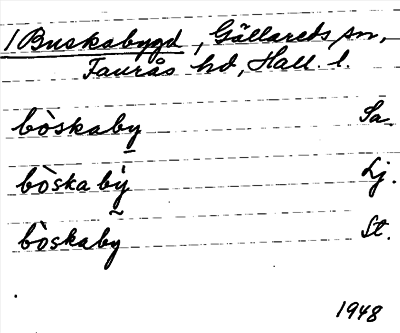 1 Buskabygd, Gällareds sn,
Faurås hd, Hall l.
bòskaby Sa.
bòskabý Lj.
bòskabỹ St.
1948